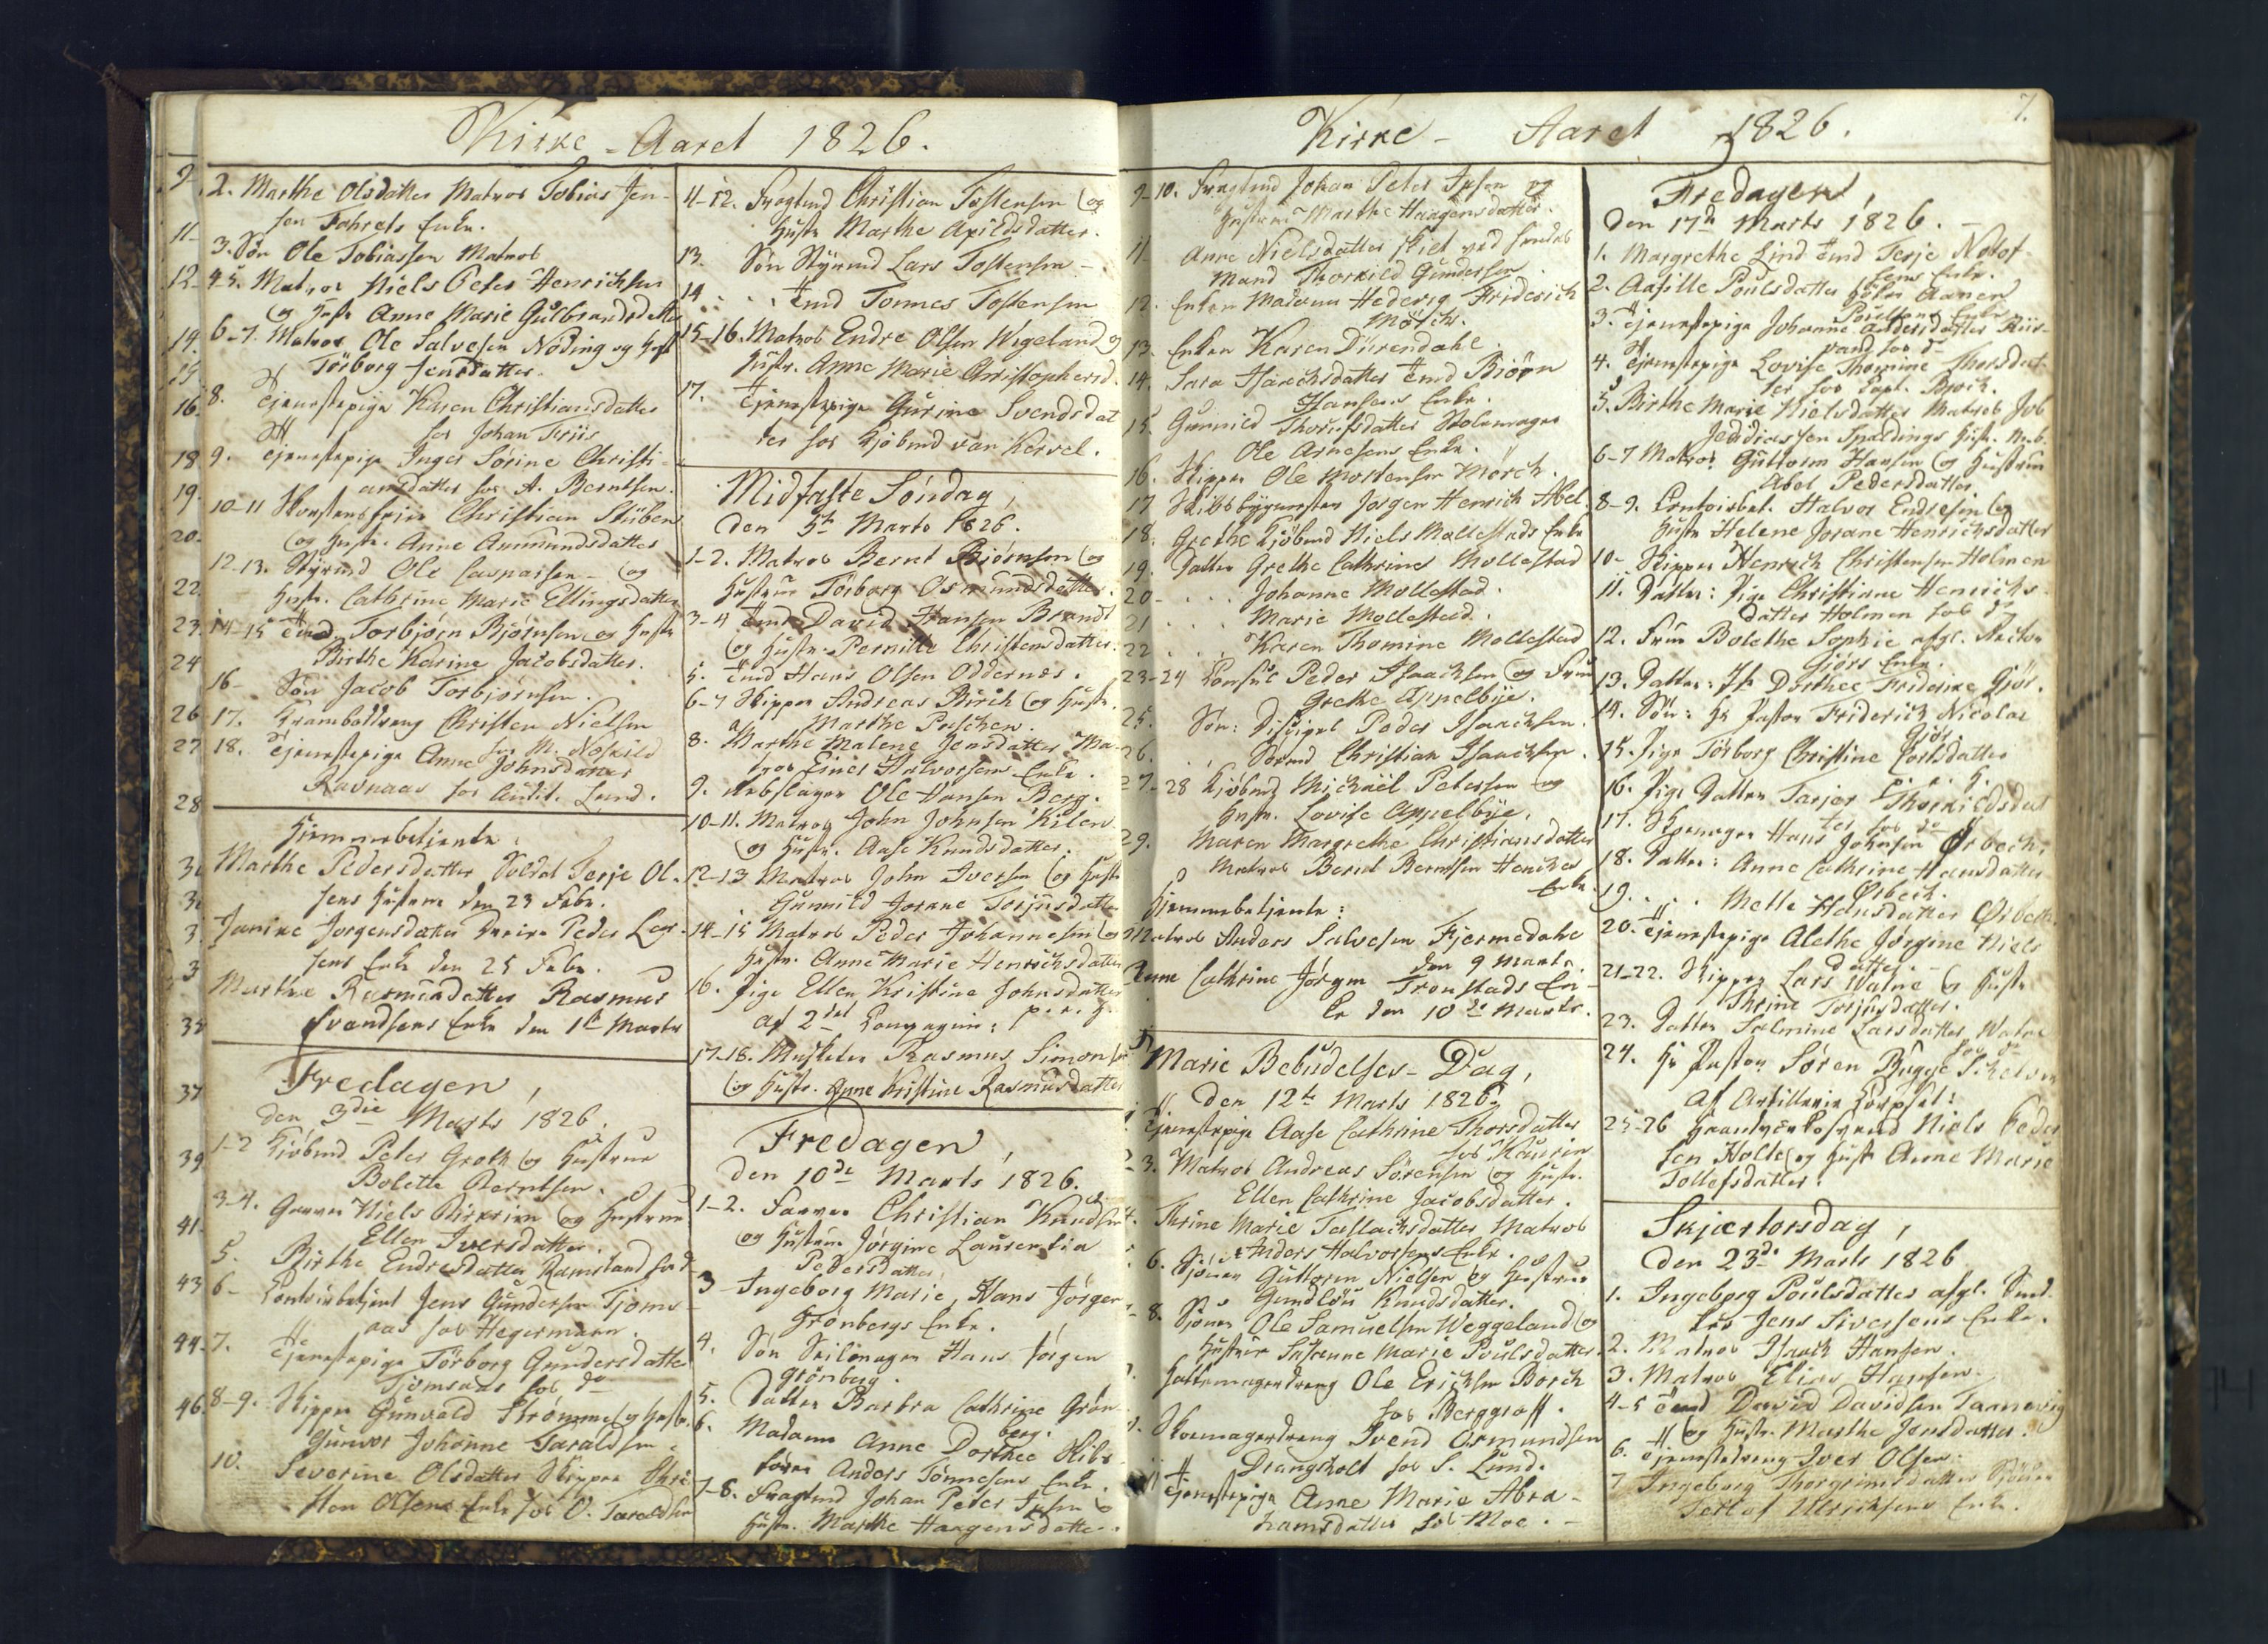 Kirke-Aaret 1826.
2. Marthe Olsdatter Matros Tobias Jen-
sen Enke.
3. Søn Ole Tobiassen Matros
4-5. Matros Niels Peter Henrichsen
og Hustr Anne Marie Gulbrandsdatter
6-7. Matros Ole Salvesen Nøding og Hust
Torborg Jensdatter.
8. Tjenestepige Karen Christiansdatter
hos Johan Friis
9. Tjenestepige Inger Sørine Christi-
ansdatter hos A. Berntsen.
10-11 Christian Stüben
og Hustr. Anne Aanundsdatter
12-13. Styrmd Ole Caspersen og
Hustr. Cathrine Marie Ellingsdatter
14-15 Tmd. Torbjørn Bjørnsen og Hustr
Birthe Karine Jacobsdatter.
16- Søn Jacob Torbjørnsen.
17. Kramboddreng Christen Nielsen
hos M.
18. Tjenestepige Anne Johnsdatter
Ravnaas hos Audit. Lund.
Hjemmebetjente:
Marthe Pedersdatter Soldat Terje Ol-
sens Hustrue den 23 Febr.
Janike Jørgensdatter Peder Lar-
sens Enke den 25 Febr.
Marthe Rasmusdatter Rasmus
Svendsens Enke den 1st Marts
Fredagen,
den 3die Marts 1826.
1-2 Kiøbmd Peter Groth og Hustrue
Bolette Berntsen.
3-4. Garver Niels og Hustrue
Ellen Iversdatter.
5. Birthe Endresdatter Ramsland
6- Contoirbetjent Jens Gundersen Tjoms-
aas hos Hegermann.
7. Tjenestepige Torborg Gundersdatter
Tjomsaas hos do
8-9. Skipper Gunvald Strømme og Hustr.
Gunvor Johanne Taraldsen.
10. Severine Olsdatter Skipper Chri-
sten Olsens Enke hos O. Taraldsen
11-12. Fragtmd Christian Tostensen og
Hustr Marthe Apildsdatter.
13. Søn Styrmd Lars Tostensen -
14 . . Tmd Tonnes Tostensen
15-16. Matros Endre Olsen Wigeland og
Hustr. Anne Marie Christophersd.
17. Tjenestepige Gurine Svendsdat
ter hos Kjøbmd van Kervel.
Midfaste Søndag,
den 5te Marts 1826.
1-2. Matros Bernt Bjørnsen og
Hustrue Torborg Osmundsdatter.
3-4 Tmd David Hansen Brandt
og Hustr. Pernille Christensdatter.
5. Tmd Hans Olsen Oddernes.
6-7 Skipper Andreas Birch og Hustr.
Marthe
8. Marthe Malene Jensdatter Ma-
tros Einer Halvorsens Enke.
9. Rebslager Ole Hansen Berg.
10-11. Matros John Johnsen Kilen
og Hustr. Aase Knudsdatter.
12-13 Matros John Iversen og Hustr
Gunnild Torjusdatter
14-15 Matros Peder Johannesen og
Hustr. Anne Marie Henrichsdatter
16. Pige Ellen Kristine Johnsdatter
Af 2det Compagnie:
17-18. Musketer Rasmus Simonsen
og Hustr. Anne Kristine Rasmusdatter
Fredagen,
den 10de Marts 1826.
1-2. Farver Christian Knudsen
og Hustrue Jørgine Laurentia
Pedersdatter
3 Ingeborg Marie, Hans Jørgen
Grønbergs Enke.
4. Søn Seilmager Hans Jørgen
Grønberg.
5. Datter Barbra Cathrine Grøn-
berg.
6. Madame Anne Dorthee Skibs-
fører Anders Tønnesens Enke.
7-8. Fragtmd Johan Peter Ipsen og
Hustr. Marthe Haagensdatter.
Kirke- Aaret 1826.
7.
9-10. Fragtmd Johan Peter Ipsen og
Hustrue Marthe Haagensdatter.
11- Anne Nielsdatter skilt ved hendes
Mand Thorkild Gundersen.
12. Enken Madame Hedevig Friderich
Mörch.
13. Enken Karen Dürendahl.
14. Sara Isaachsdatter Tmd Biørn
Hansens Enke.
15. Gunnild Thorufsdatter Stolemager
Ole Arnesens Enke.
16. Skipper Ole Mortensen Mörch.
17 Skibsbygmester Jørgen Henrich Abel
18. Grethe Kjøbmd Niels Mollestads Enke
19. Datter Grethe Cathrine Mollestad
20- . . . Johanne Mollestad.
21 . . . Marie Mollestad.
22 . . . Karen Thomine Mollestad
23-24 Consul Peder Isaachsen og Frue
Grethe Appelbye.
25. Søn: Discipel Peder Isaachsen.
26. . . Christian Isaachsen.
27-28 Kjøbmd Michael Petersen og
Hustr. Lovise Appelbye.
29. Maren Margrethe Christiansdatter
Matros Bernt Berntsen Henckes
Enke.
Hjemmebetjente:
Matros Anders Salvesen Fjermedahl
den 9 Marts.
Anne Cathrine Jørgen Tronstads En-
ke den 10de Marts.
Marie Bebudelses-Dag,
den 12te Marts 1826.
Tjenestepige Aase Cathrine Thorsdatter
hos Kaurin
3. Matros Andreas Sørensen og Hustr.
Ellen Cathrine Jacobsdatter.
Thrine Marie Tallachsdatter Matros
Anders Halvorsens Enke.
6. Guttorm Nielsen og Hustrue
Knudsdatter.
8. Ole Samuelsen Weggeland og
Hustrue Susanne Marie Poulsdatter
Hattemagerdreng Ole Erichsen Borch
hos Berggraff.
Skoemagerdreng Svend Osmundsen
Drangsholt hos S. Lund.
Tjenestepige Anne Marie Abra-
hamsdatter hos Moe.
Fredagen,
den 17de Marts 1826.
1. Margrethe Lind Tmd Terje Notof-
sens Enke.
2. Aasille Poulsdatter
Poulsens Enke
3. Tjenestepige Johanne Andersdatter
hos do
4. Tjenestepige Lovise Thomine Thorsdat-
ter hos Capt.
5. Birthe Marie Nielsdatter Matros Job
Jeddiassen Spaldings Hustr.
6-7 Matros Guttorm Hansen og Hustrue
Abel Pedersdatter
8-9. Contoirbet. Halvor Endresen og
Hustr Helene Jorane Henrichsdatter
10- Skipper Henrich Christensen Holmen
11. Datter: Pige Christiane Henrichs-
datter Holmen hos do
12. Frue Bolethe Sophie afgl. Rector
Gjørs Enke.
13. Datter: Jfr Dorthee Friderike Gjør.
14. Søn: Hr Pastor Friderich Nicolai
Gjør.
15. Pige Torborg Christine Carlsdatter
16. Pige Datter Tarjer Thorkildsdat
ter hos do
17. Hans Johnsen Ørbech.
18. Datter: Anne Cathrine Hansdatter
Ørbech.
19. . . . Mette Hansdatter Ørbech.
20. Tjenestepige Alethe Jørgine Niels
datter.
21-22. Skipper Lars Watne og Hustr
Thrine Torjusdatter.
23. Datter Salmine Larsdatter Watne
hos do
24. Hr Pastor Søren Bugge
Af Artillerie Corpset:
25-26 Niels Peder
sen Holte og Hustr Anne Marie
Tollefsdatter.
Skjærtorsdag,
den 23de Marts 1826
1. Ingeborg Poulsdatter afgl.
Jens Siversens Enke.
2. Matros Isach Hansen.
3. Matros Elias Hansen.
4-5 Tmd David Davidsen Taanevig
og Hustr. Marthe Jensdatter.
6. Tjenestedreng Iver Olsen.
7 Ingeborg Thorgrimsdatter
Tellof Ulrichsens Enke.